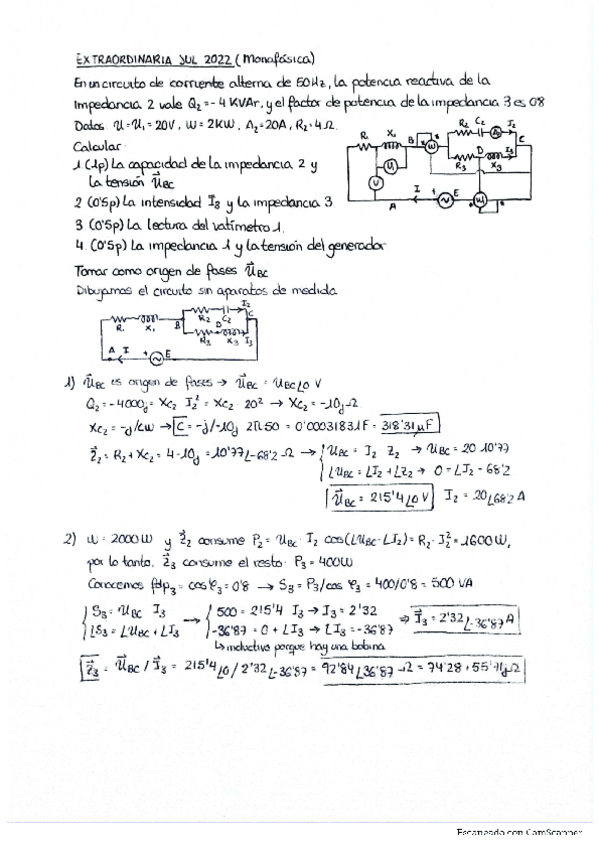 EXTRAORDINARIA JUL 2022 (Monofásica)
En un circuito de corriente alterna de 50Hz, la potencia reactiva de la
impedancia 2 vale Q₂ = -4 KVAr, y el factor de potencia de la impedancia 3 es 0'8
Datos: U = U₁ = 20V, W = 2KW, A₂ = 20A, R₂ = 4Ω.
Calcular:
1 (1p) La capacidad de la impedancia 2 y
la tensión U⃗BC
2 (0'5p) La intensidad I⃗3 y la impedancia 3
3 (0'5p) La lectura del vatímetro 1.
4. (0'5p) La impedancia 1 y la tensión del generador
Tomar como origen de fases U⃗BC
R₁ X₁ B W R₂ C₂ A₂ I₂ C
U V D R₃ X₃ I₃
A I + E W₁
Dibujamos el circuito sin aparatos de medida
R₁ X₁ B R₂ C₂ I₂ C
D R₃ X₃ I₃
A I + E
1) U⃗BC es origen de fases → U⃗BC = UBC∠0 V
Q₂ = -4000j = Xc₂ I₂² = Xc₂ · 20² → Xc₂ = -10j Ω
Xc₂ = -j/cω → C = -j/-10j 2π50 = 0'00031831F = 318'31 μF
Z⃗₂ = R₂ + Xc₂ = 4 - 10j = 10'77∠-68'2 Ω → UBC = I₂ Z₂ → UBC = 20 · 10'77
∠UBC = ∠I₂ + ∠Z₂ → 0 = ∠I₂ - 68'2
U⃗BC = 215'4∠0 V I₂ = 20∠68'2 A
2) W = 2000W y Z⃗₂ consume P₂ = UBC · I₂ cos(∠UBC - ∠I₂) = R₂ · I₂² = 1600 W,
por lo tanto, Z⃗₃ consume el resto: P₃ = 400W
Conocemos fdp₃ = cos φ₃ = 0'8 → S₃ = P₃/cos φ₃ = 400/0'8 = 500 VA
S₃ = UBC I₃ → 500 = 215'4 I₃ → I₃ = 2'32 ⇒ I⃗₃ = 2'32∠-36'87 A
∠S₃ = ∠UBC + ∠I₃ -36'87 = 0 + ∠I₃ → ∠I₃ = -36'87
↳ inductivo porque hay una bobina
Z⃗₃ = U⃗BC / I⃗₃ = 215'4∠0 / 2'32∠-36'87 = 92'84∠36'87 Ω = 74'28 + 55'71j Ω
Escaneado con CamScanner